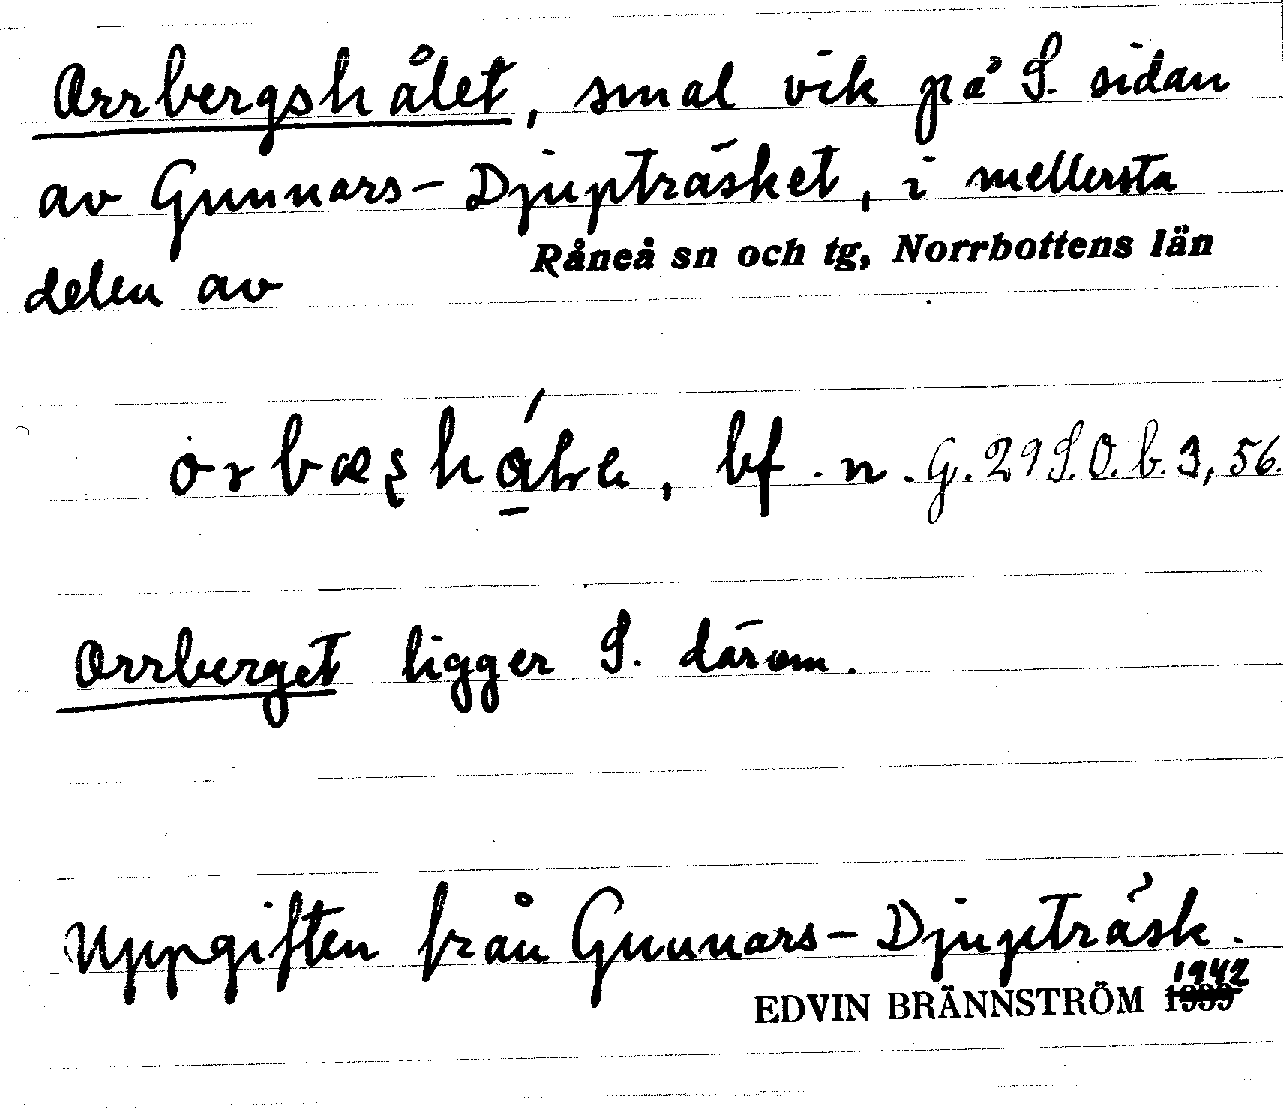 Orrbergshålet, smal vik på S. sidan
av Gunnars-Djupträsket, i mellersta
delen av Råneå sn och tg, Norrbottens län
bf. n. G. 29 S. O. b. 3, 56.
Orrberget ligger S. därom.
Uppgiften från Gunnars-Djupträsk.
EDVIN BRÄNNSTRÖM 1942